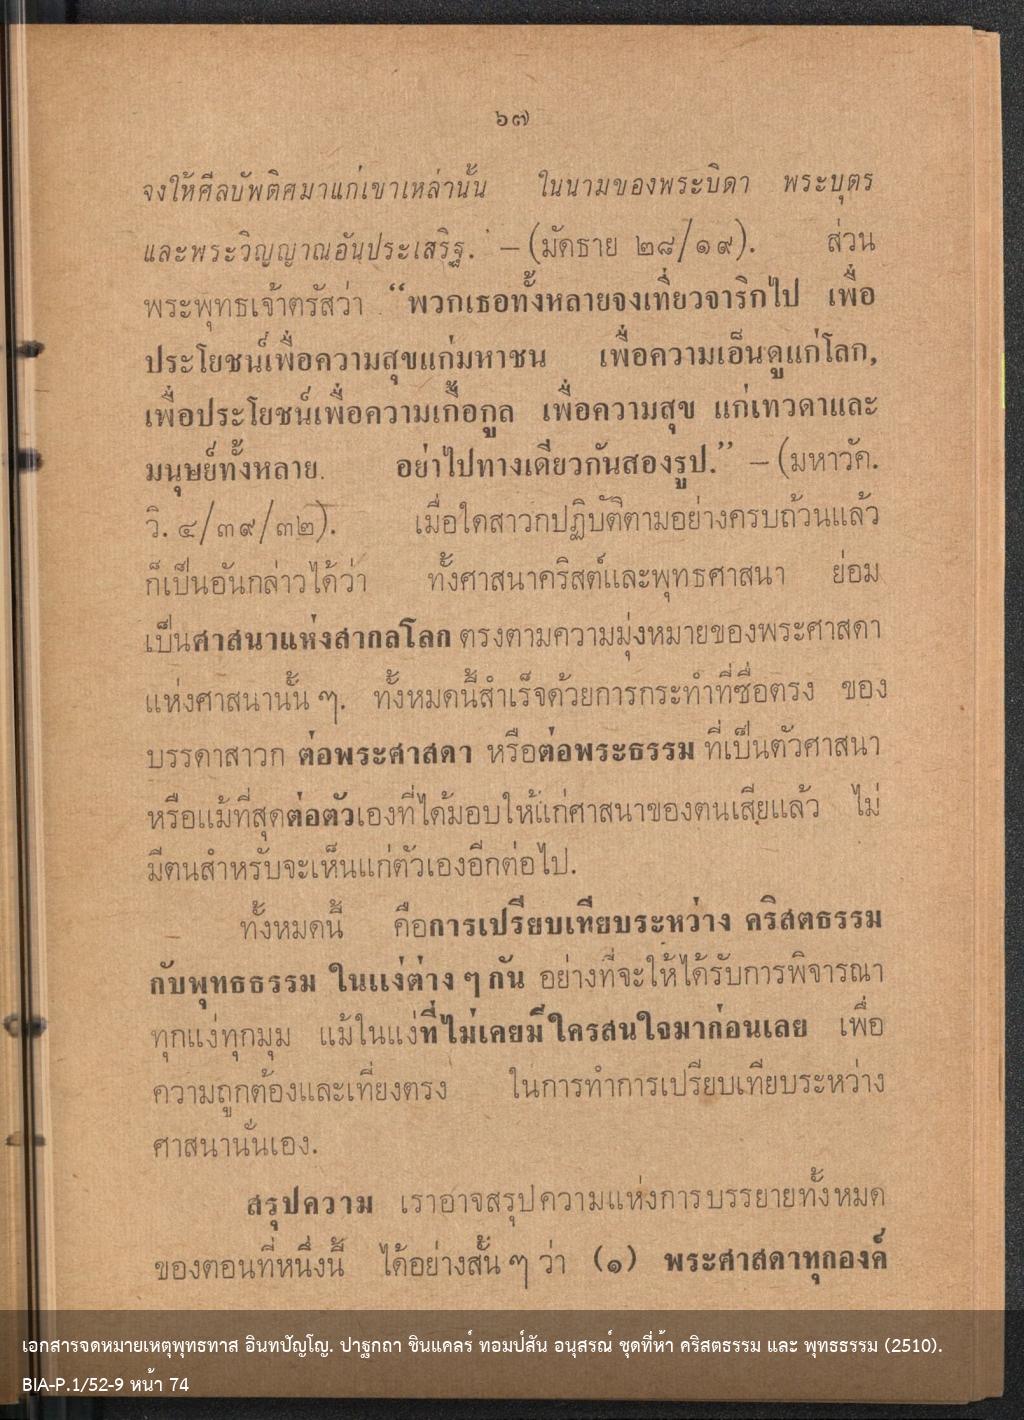 ๖๗
จงให้ศีลบัพติศมาแก่เขาเหล่านั้น ในนามของพระบิดา พระบุตร
และพระวิญญาณอันประเสริฐ. – (มัดธาย ๒๘/๑๙). ส่วน
พระพุทธเจ้าตรัสว่า “พวกเธอทั้งหลายจงเที่ยวจาริกไป เพื่อ
ประโยชน์เพื่อความสุขแก่มหาชน เพื่อความเอ็นดูแก่โลก,
เพื่อประโยชน์เพื่อความเกื้อกูล เพื่อความสุข แก่เทวดาและ
มนุษย์ทั้งหลาย. อย่าไปทางเดียวกันสองรูป.” – (มหาวัค.
วิ. ๔/๓๙/๓๒). เมื่อใดสาวกปฏิบัติตามอย่างครบถ้วนแล้ว
ก็เป็นอันกล่าวได้ว่า ทั้งศาสนาคริสต์และพุทธศาสนา ย่อม
เป็นศาสนาแห่งสากลโลก ตรงตามความมุ่งหมายของพระศาสดา
แห่งศาสนานั้น ๆ. ทั้งหมดนี้สำเร็จด้วยการกระทำที่ซื่อตรง ของ
บรรดาสาวก ต่อพระศาสดา หรือต่อพระธรรม ที่เป็นตัวศาสนา
หรือแม้ที่สุดต่อตัวเองที่ได้มอบให้แก่ศาสนาของตนเสียแล้ว ไม่
มีตนสำหรับจะเห็นแก่ตัวเองอีกต่อไป.
ทั้งหมดนี้ คือการเปรียบเทียบระหว่าง คริสตธรรม
กับพุทธธรรม ในแง่ต่าง ๆ กัน อย่างที่จะให้ได้รับการพิจารณา
ทุกแง่ทุกมุม แม้ในแง่ที่ไม่เคยมีใครสนใจมาก่อนเลย เพื่อ
ความถูกต้องและเที่ยงตรง ในการทำการเปรียบเทียบระหว่าง
ศาสนานั่นเอง.
สรุปความ เราอาจสรุปความแห่งการบรรยายทั้งหมด
ของตอนที่หนึ่งนี้ ได้อย่างสั้น ๆ ว่า (๑) พระศาสดาทุกองค์
เอกสารจดหมายเหตุพุทธทาส อินทปัญโญ. ปาฐกถา ซินแคลร์ ทอมป์สัน อนุสรณ์ ชุดที่ห้า คริสตธรรม และ พุทธธรรม (2510).
BIA-P.1/52-9 หน้า 74